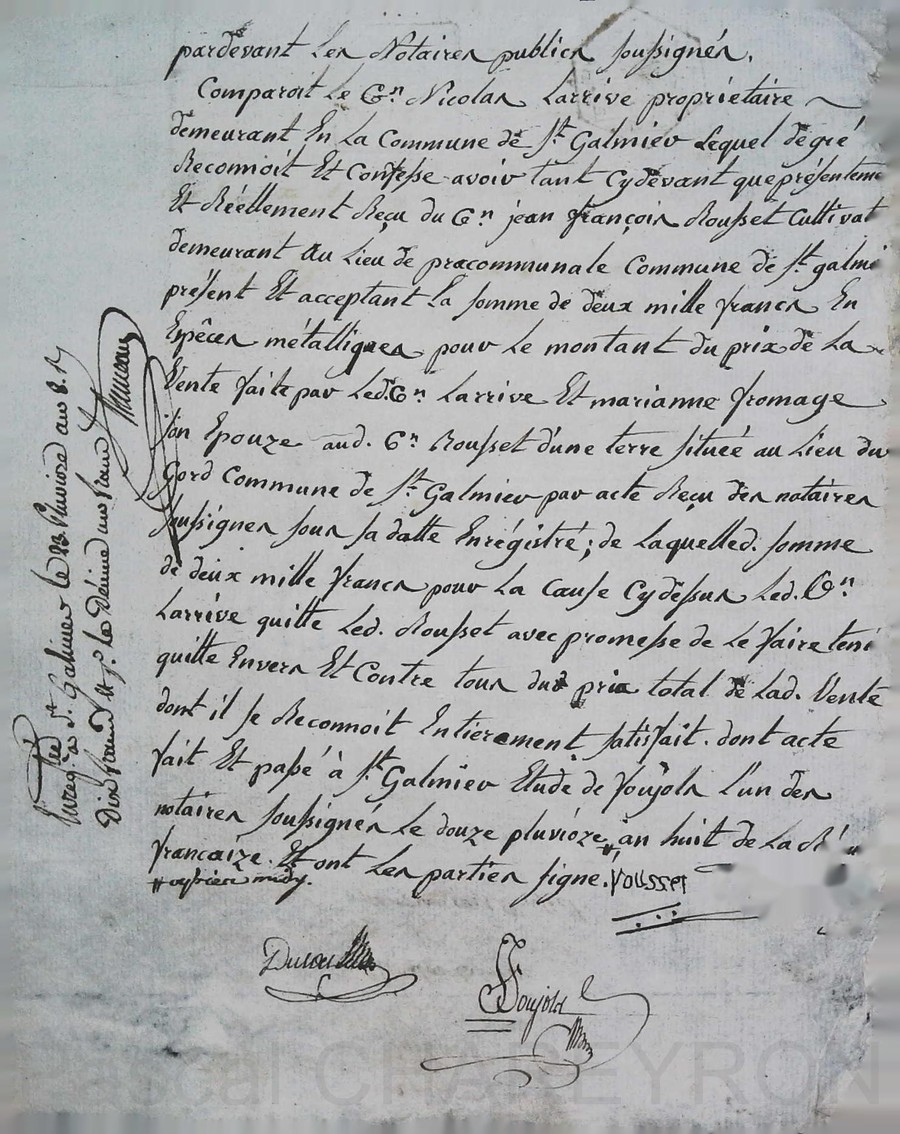 pardevant Les Notaires publics soussignés.
Comparoit Le Cn Nicolas Larrive propriétaire
demeurant En La Commune de St Galmier Lequel de gré
Reconnoit Et Confesse avoir tant Cydevant que présenteme
Et Réellement Reçu du Cn jean françois Rousset Cultivat
demeurant Au Lieu de pracommunale Commune de St galmi
présent Et acceptant La somme de deux mille francs En
Espêces métalliques pour Le montant du prix de La
Vente faite par Led. Cn Larrive Et marianne fromage
son Epouze aud. Cn Rousset d'une terre située au Lieu du
Gord Commune de St Galmier par acte Reçu des notaires
soussignes sous sa datte Enrégistré; de Laquelled. somme
de deux mille francs pour La Cause Cydessus Led. Cn
Larrive quitte Led. Rousset avec promesse de Le faire teni
quitte Envers Et Contre tous dud prix total de Lad. Vente
dont il se Reconnoit Entierement satisfait. dont acte
fait Et passé à St Galmier Etude de foujols L'un des
notaires soussignés Le douze pluvioze, an huit de La Ré
francaize. Et ont Les parties signe. rousset
foujols
Enreg. a St Galmier le 13 Pluviose an 8.
Pascal CHAREYRON